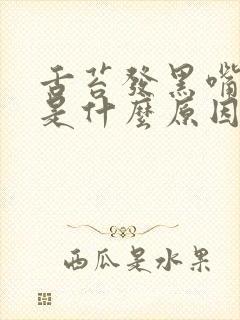 舌苔發黑嘴
是什麼原因
西瓜是水果